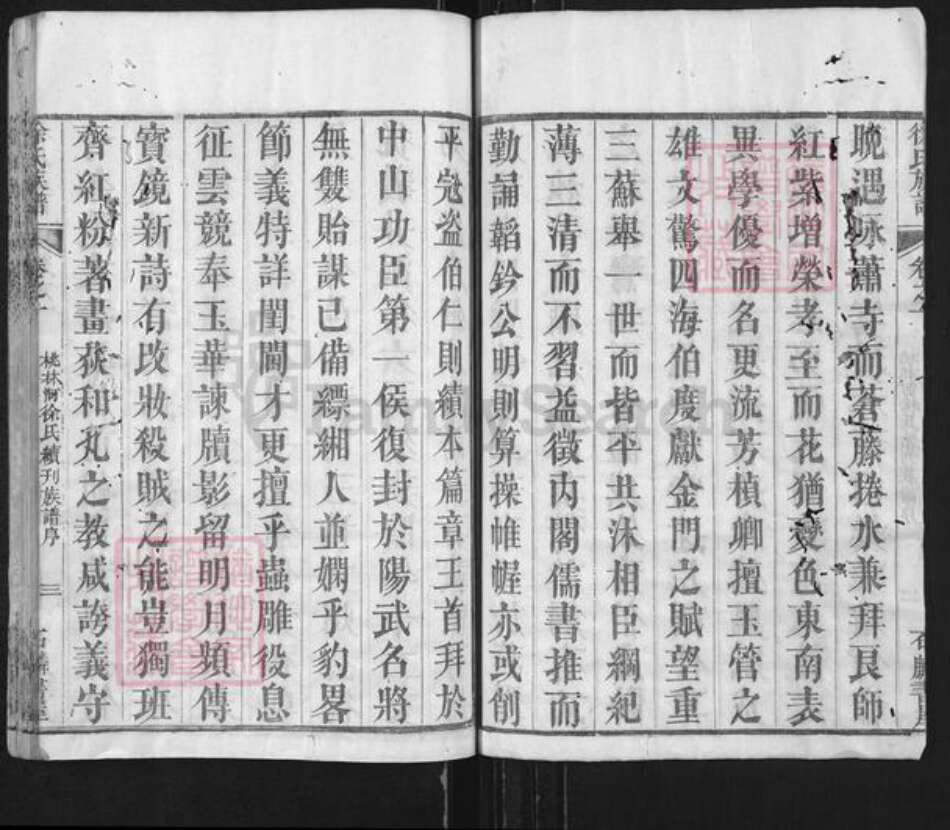 晩遇咏蕭寺而蒼藤捲水兼拜艮師
紅紫增榮孝至而花猶變色東南表
異學優而名更流芳楨卿擅玉管之
雄文驚四海伯度獻金門之賦望重
三蘇舉一世而皆平共沐相臣綱紀
薄三清而不習益徵内閣儒書推而
勤誦韜鈐公明則算操帷幄亦或創
平寇盜伯仁則績本篇章王首拜於
中山功臣第一侯復封於陽武名將
無雙貽謀已備縹緗人並嫻乎豹畧
節義特詳閨閫才更擅乎蟲雕役息
征雲競奉玉華諫牘影留明月頻傳
寶鏡新詩有改妝殺賊之能豈獨班
齊紅粉著畫荻和丸之教咸誇義守
徐氏族譜
卷之
桃林㵎徐氏續刊族譜序
三
FamilySearch